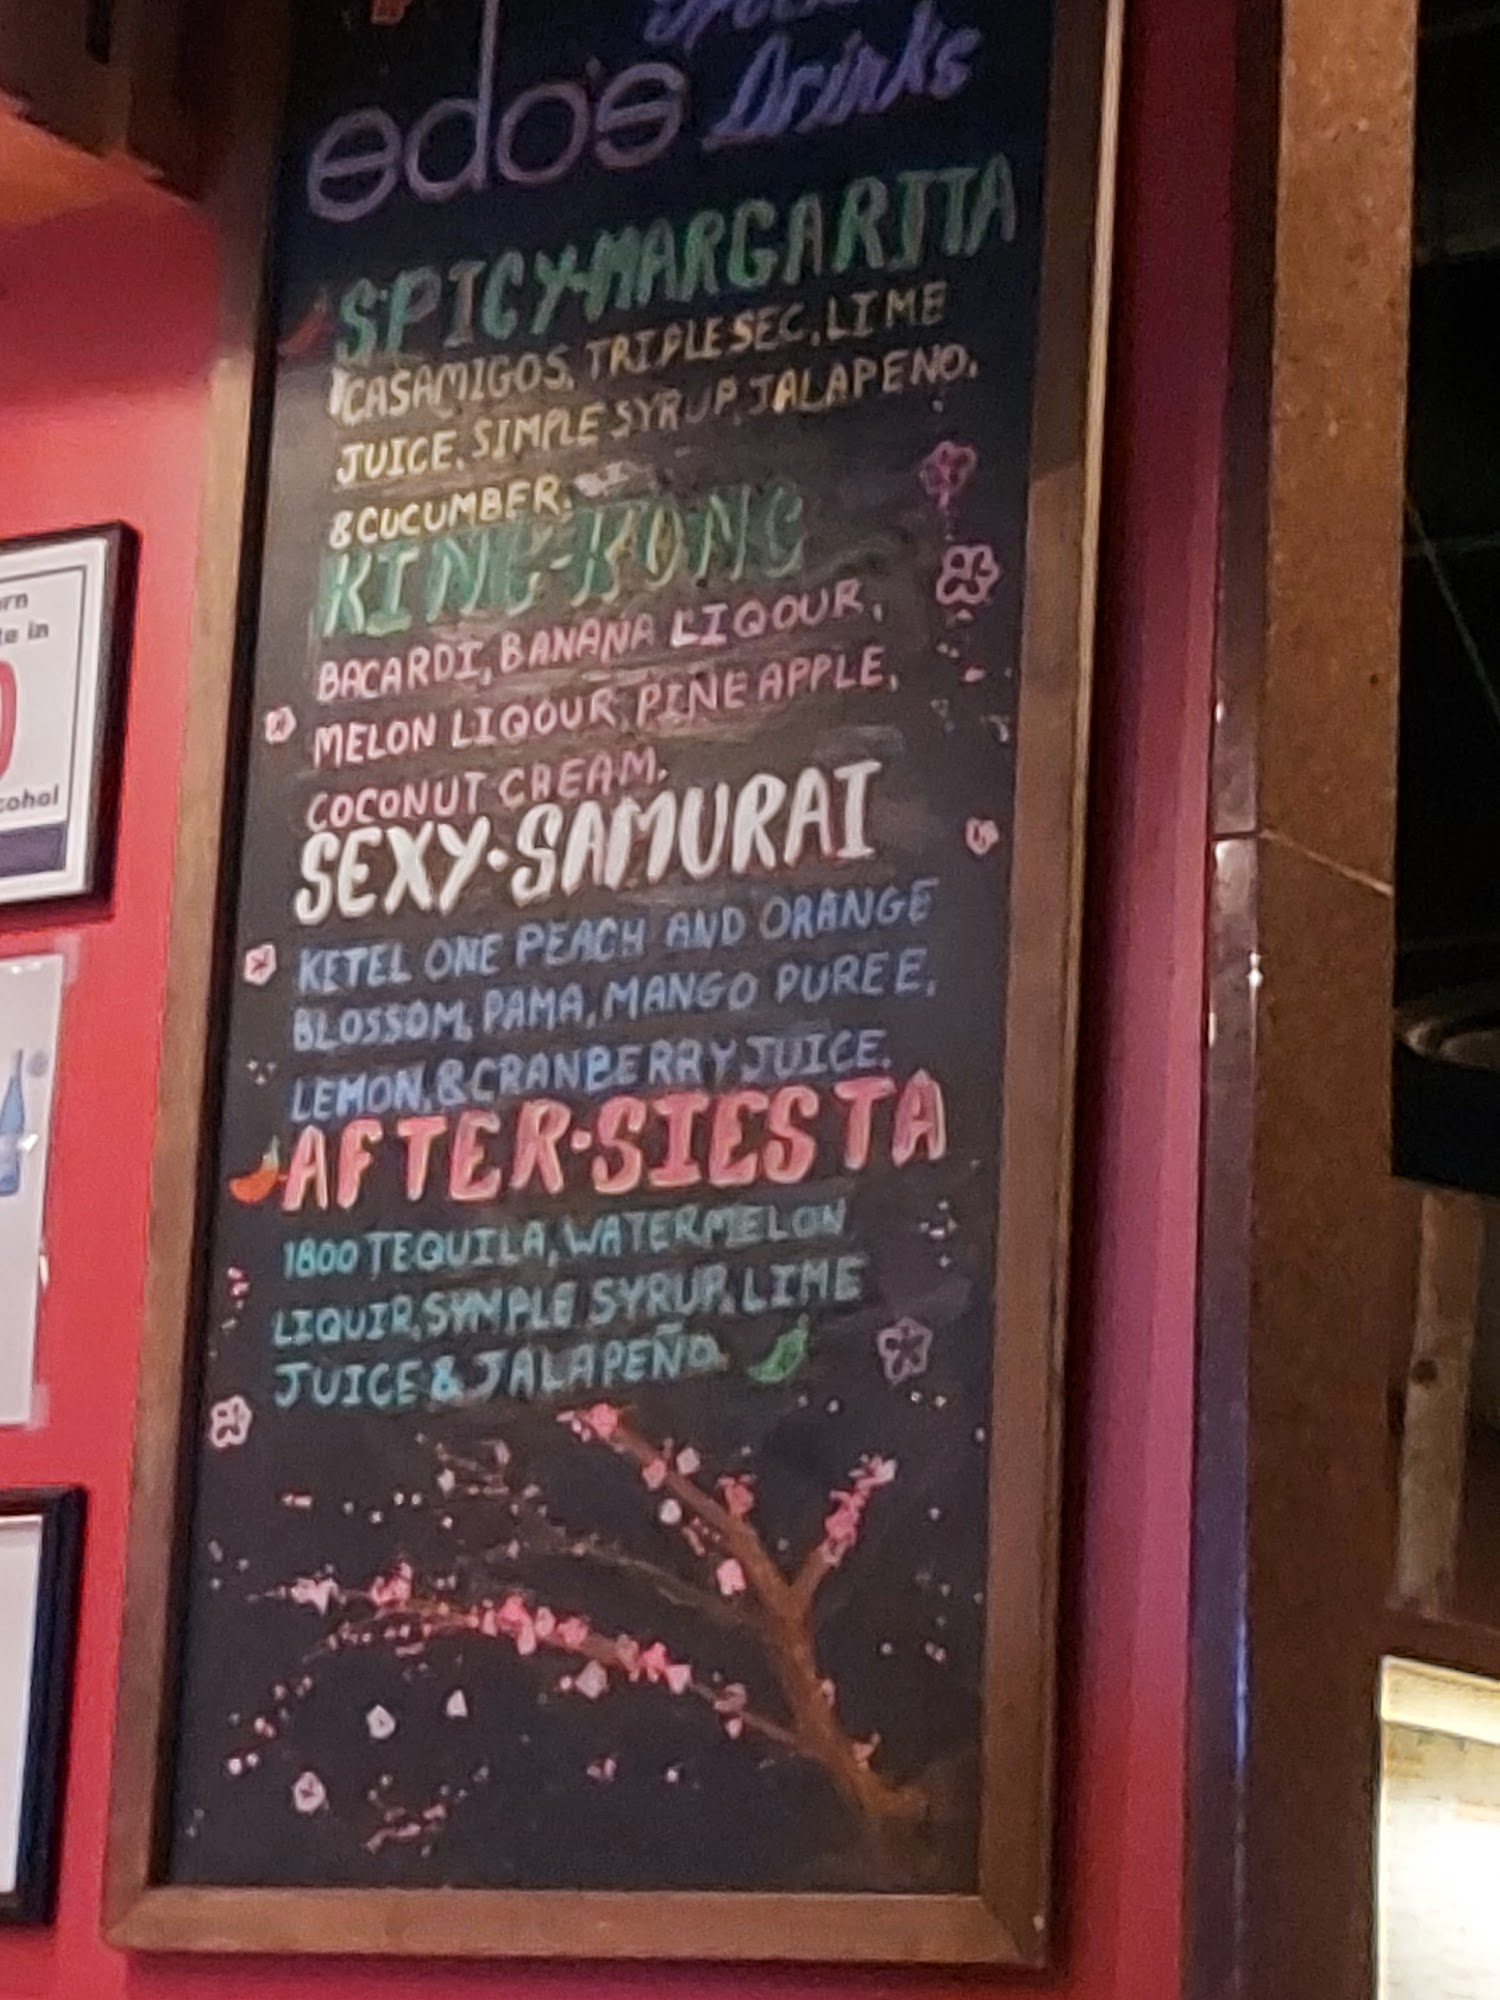 edo's
Drinks
SPICY·MARGARITA
CASAMIGOS, TRIPLE SEC, LIME
JUICE, SIMPLE SYRUP, JALAPENO,
& CUCUMBER.
KING-KONG
BACARDI, BANANA LIQOUR,
MELON LIQOUR, PINEAPPLE,
COCONUT CREAM.
SEXY·SAMURAI
KETEL ONE PEACH AND ORANGE
BLOSSOM, PAMA, MANGO PUREE,
LEMON, & CRANBERRY JUICE.
AFTER·SIESTA
1800 TEQUILA, WATERMELON
LIQUIR, SYMPLE SYRUP, LIME
JUICE & JALAPEÑO.
in